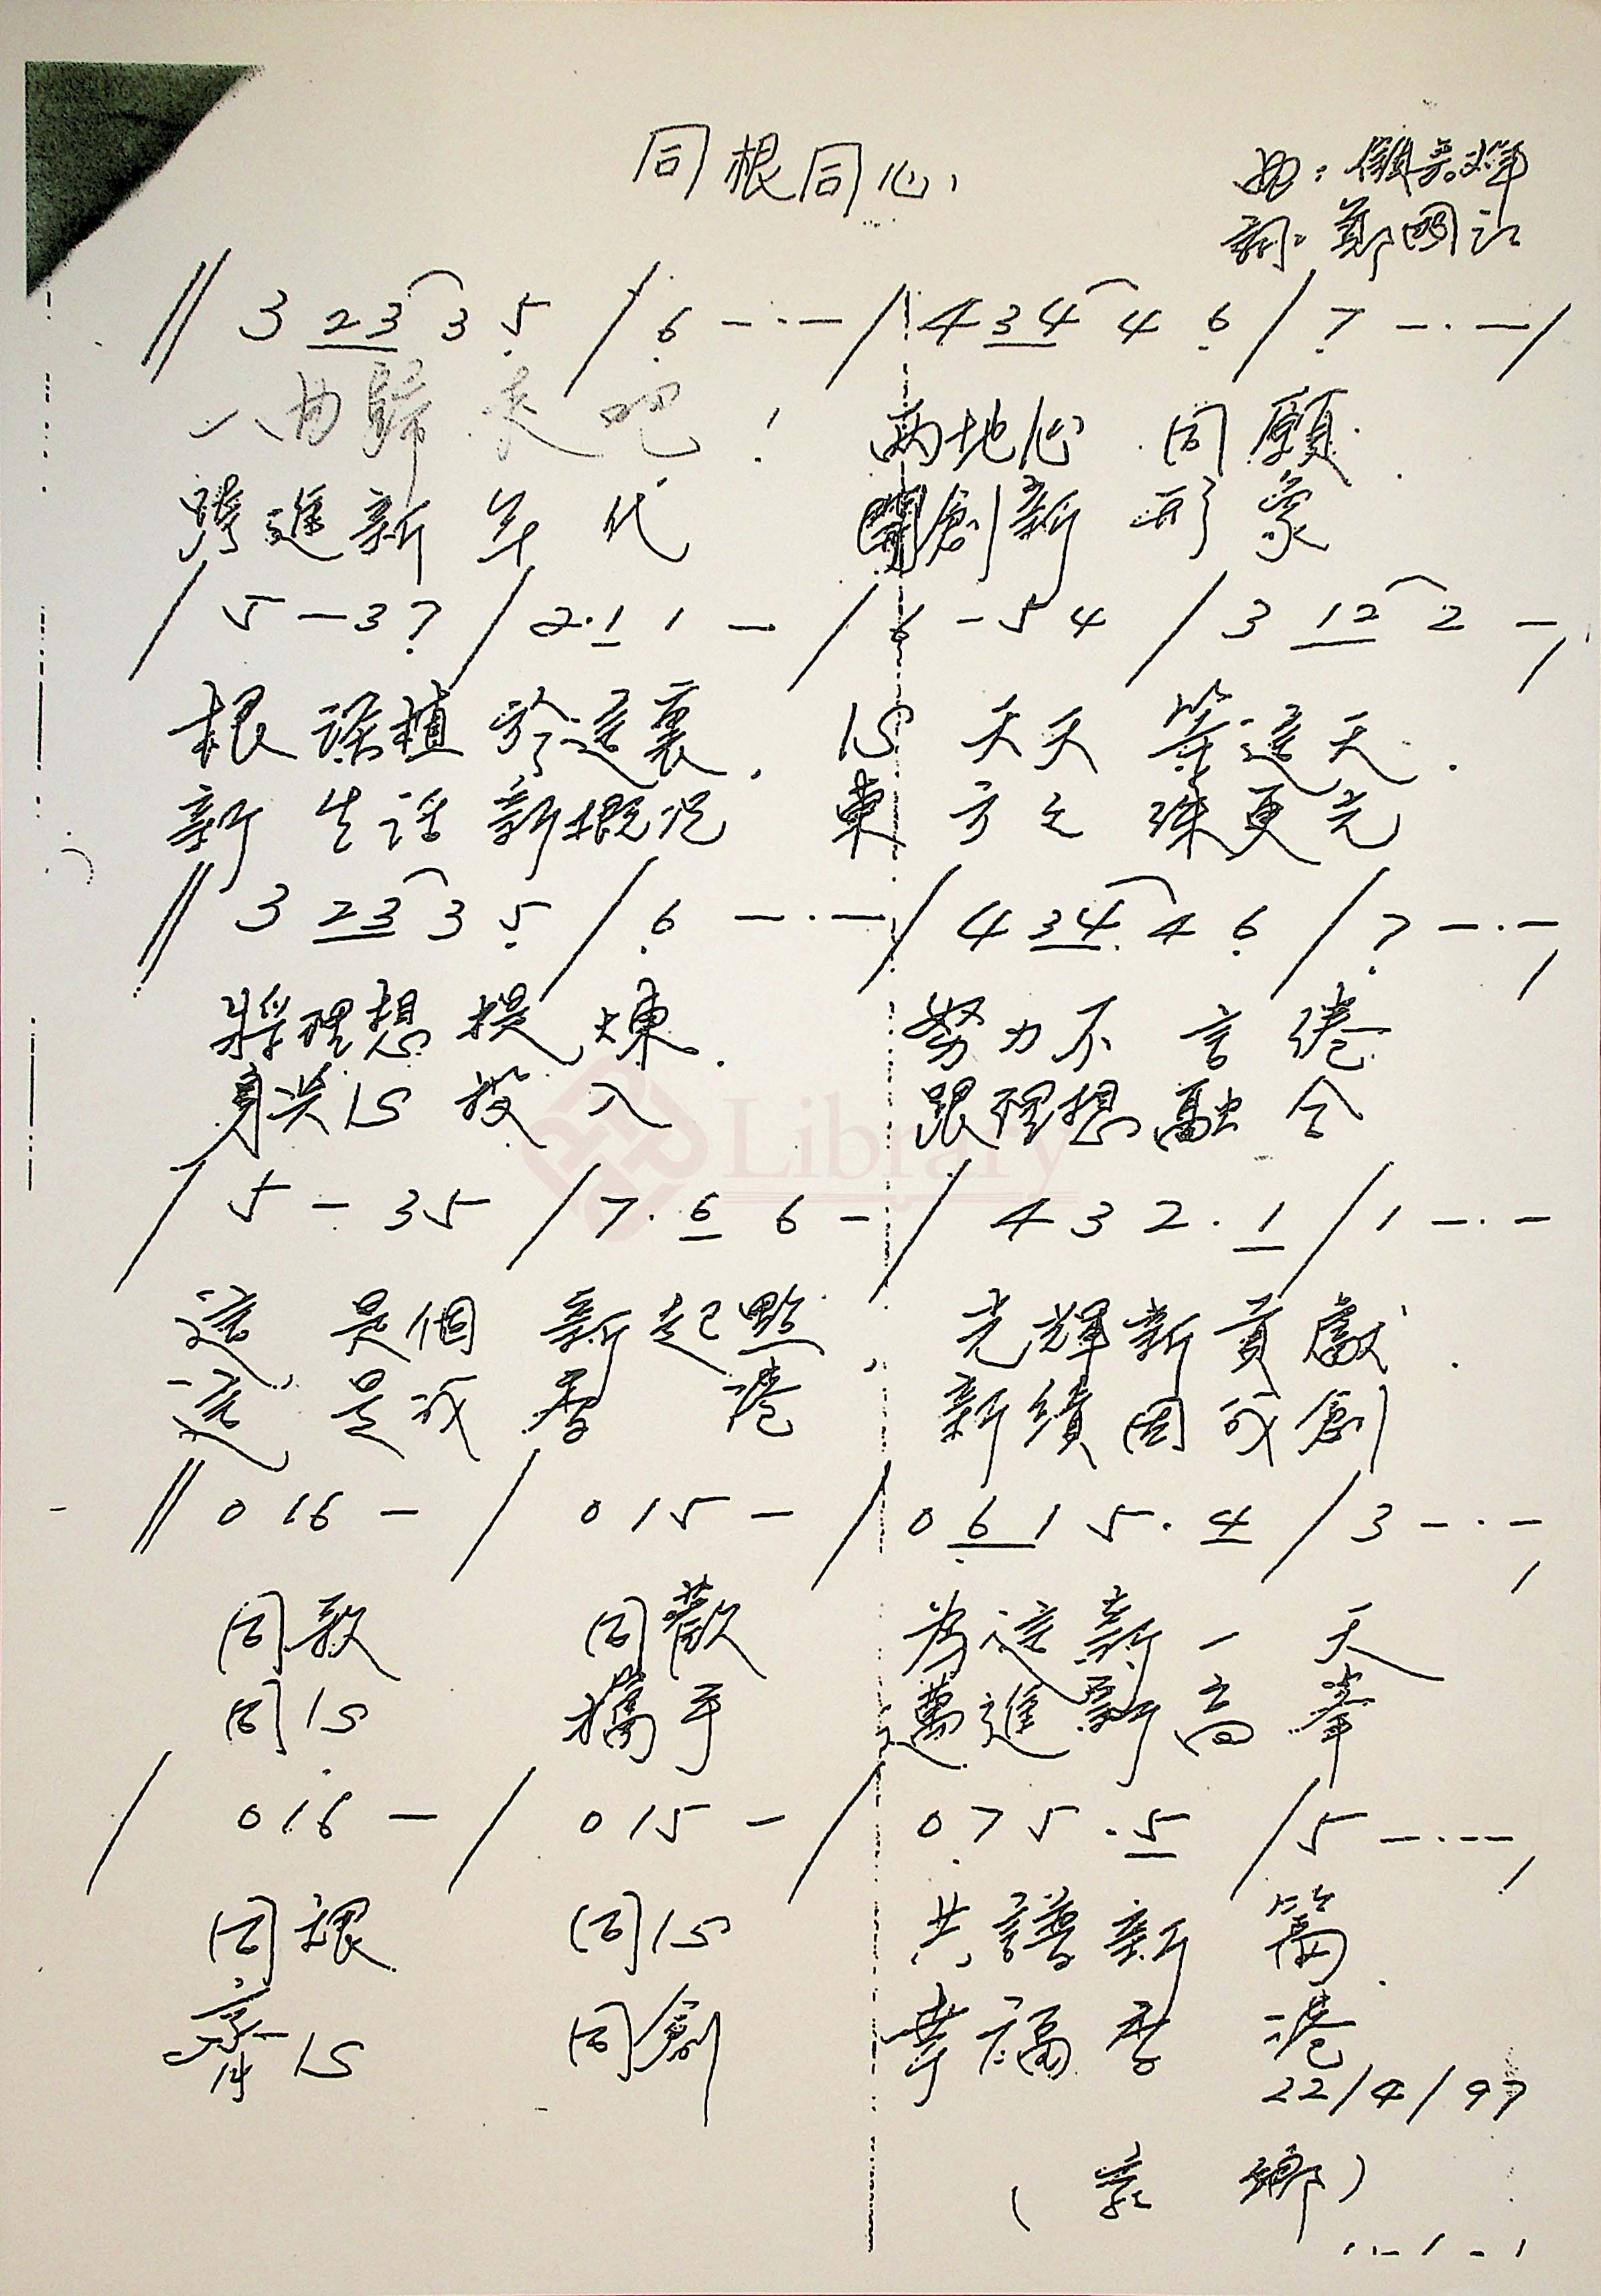 同根同心
曲：顧嘉煇
詞：鄭國江
// 3 23 3 5 / 6 - · - / 4 34 4 6 / 7 - · - /
八曲歸去吧！ 兩地心同願.
跨進新年代 開創新形象
/ 5 - 3 7 / 2·1 1 - / 6 - 5 4 / 3 12 2 - /
根深植於這裏. 心天天等這天.
新生活新概況 東方之珠更光
// 3 23 3 5 / 6 - · - / 4 34 4 6 / 7 - · - /
將理想提煉. 努力不言倦
身與心投入 跟理想融合
/ 5 - 3 5 / 7 · 6 6 - / 4 3 2 · 1 / 1 - · -
這是個新起點. 光輝新貢獻.
這是我香港 新績因我創
// 0 1 6 - / 0 1 5 - / 0 6 1 5 · 4 / 3 - · - /
同歌 同歡 為這新一天
同心 攜手 邁進新高峯
/ 0 1 6 - / 0 1 5 - / 0 7 5 · 5 / 5 - · - /
同根 同心 共譜新篇.
齊心 同創 幸福香港
22/4/97
Library